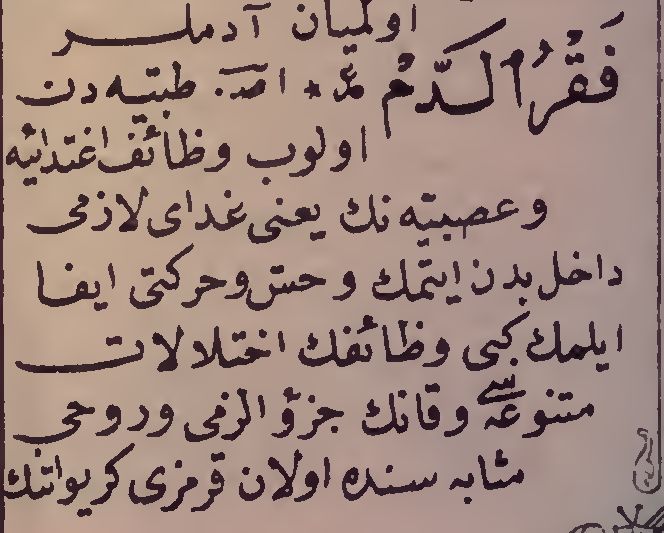 اولميان آدملر
فَقْرُ الدَّمْ ع * ا . طبيه دن
اولوب وظائف اغتدائيه
وعصبيه نك يعنى غداى لازمى
داخل بدن ايتمك وحس وحركتى ايفا
ايلمك كبى وظائفك اختلالات
متنوعه سى وقانك جزؤ الزمى وروحى
مثابه سنده اولان قرمزى كريواتنك